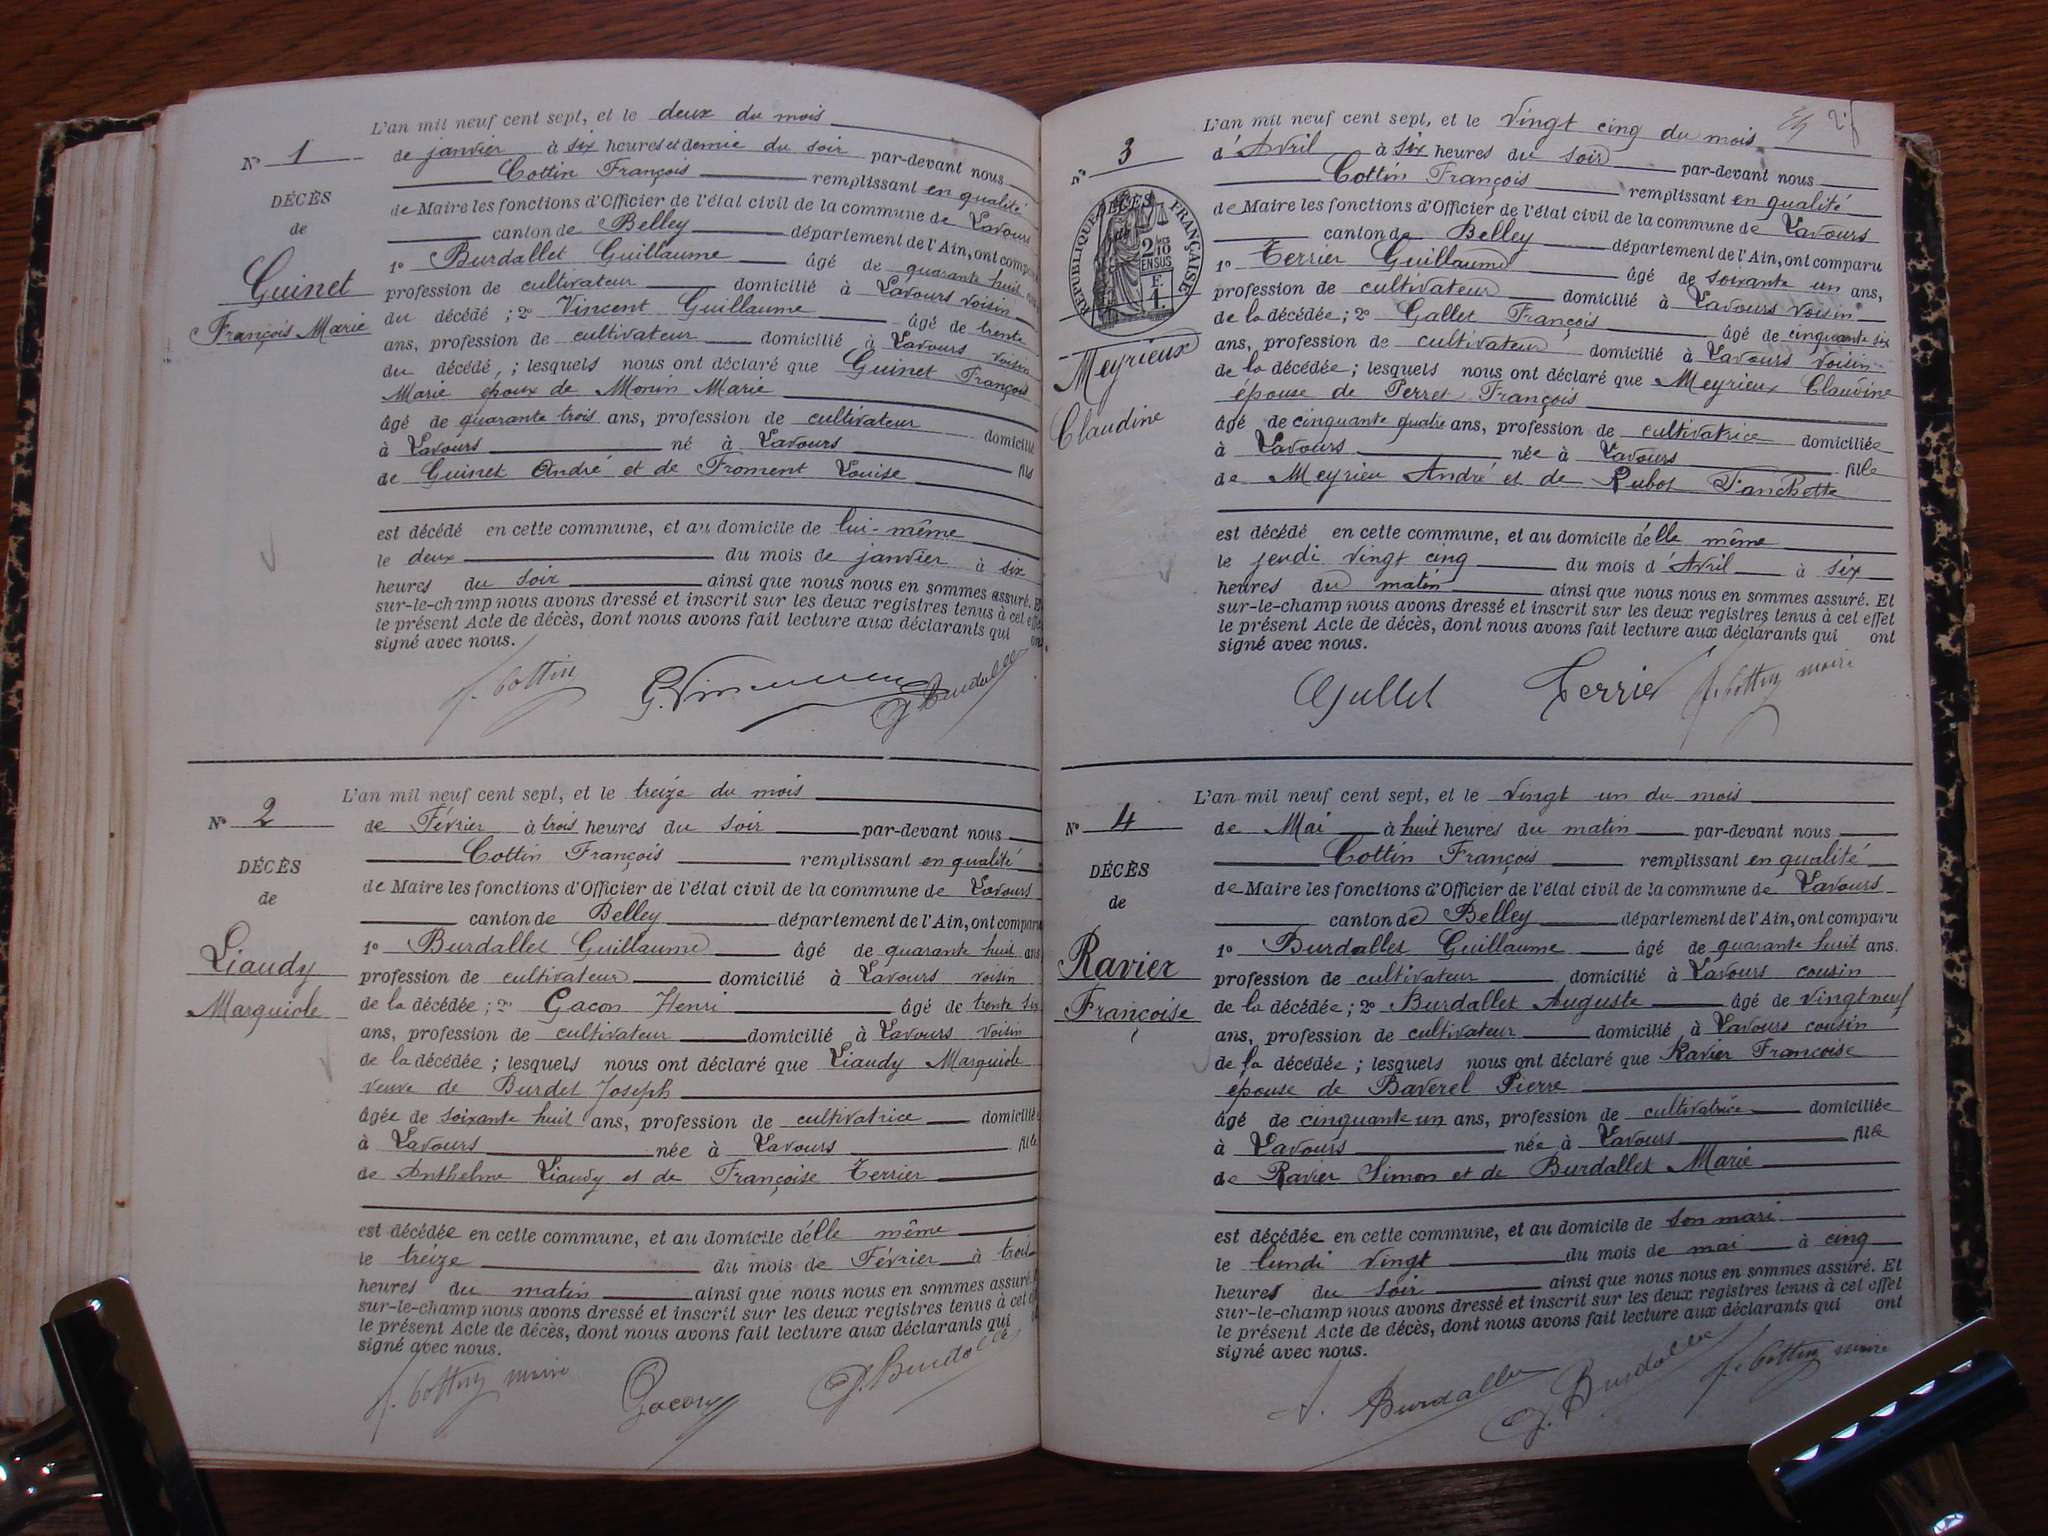 L'an mil neuf cent sept, et le deux du mois
N° 1
de janvier à six heures et demie du soir par-devant nous
Cottin François remplissant en qualité
DÉCÈS
de Maire les fonctions d'Officier de l'état civil de la commune de Lavours
de
canton de Belley département de l'Ain, ont comparu
1° Burdallet Guillaume âgé de quarante huit ans
Guinet
profession de cultivateur domicilié à Lavours voisin
François Marie
du décédé ; 2° Vincent Guillaume âgé de trente
ans, profession de cultivateur domicilié à Lavours voisin
du décédé ; lesquels nous ont déclaré que Guinet François
Marie époux de Morin Marie
âgé de quarante trois ans, profession de cultivateur domicilié
à Lavours né à Lavours fils
de Guinet André et de Froment Louise
est décédé en cette commune, et au domicile de lui-même
le deux du mois de janvier à six
heures du soir ainsi que nous nous en sommes assuré. Et
sur-le-champ nous avons dressé et inscrit sur les deux registres tenus à cet effet
le présent Acte de décès, dont nous avons fait lecture aux déclarants qui ont
signé avec nous.
f. Cottin G. Vincent G Burdallet
L'an mil neuf cent sept, et le treize du mois
N° 2
de Février à trois heures du soir par-devant nous
Cottin François remplissant en qualité
DÉCÈS
de Maire les fonctions d'Officier de l'état civil de la commune de Lavours
de
canton de Belley département de l'Ain, ont comparu
1° Burdallet Guillaume âgé de quarante huit ans
Liaudy
profession de cultivateur domicilié à Lavours voisin
Marguiole
de la décédée ; 2° Gacon Henri âgé de trente six
ans, profession de cultivateur domicilié à Lavours voisin
de la décédée ; lesquels nous ont déclaré que Liaudy Marguiole
veuve de Burdet Joseph
âgée de soixante huit ans, profession de cultivatrice domiciliée
à Lavours née à Lavours fille
de Anthelme Liaudy et de Françoise Terrier
est décédée en cette commune, et au domicile d'elle même
le treize du mois de Février à trois
heures du matin ainsi que nous nous en sommes assuré.
sur-le-champ nous avons dressé et inscrit sur les deux registres tenus à cet
le présent Acte de décès, dont nous avons fait lecture aux déclarants qui
signé avec nous.
f. Cottin maire Gacon G. Burdallet
L'an mil neuf cent sept, et le vingt cinq du mois
N° 3
d'Avril à six heures du soir par-devant nous
Cottin François remplissant en qualité
DÉCÈS
de
RÉPUBLIQUE FRANÇAISE
2/10 EN SUS
F. 1
de Maire les fonctions d'Officier de l'état civil de la commune de Lavours
canton de Belley département de l'Ain, ont comparu
1° Terrier Guillaume âgé de soixante un ans,
profession de cultivateur domicilié à Lavours voisin
de la décédée ; 2° Gallet François âgé de cinquante six
Meyrieux
ans, profession de cultivateur domicilié à Lavours voisin
de la décédée ; lesquels nous ont déclaré que Meyrieux Claudine
épouse de Perret François
Claudine
âgé de cinquante quatre ans, profession de cultivatrice domiciliée
à Lavours née à Lavours fille
de Meyrieu André et de Rubot Fanchette
est décédé en cette commune, et au domicile d'elle même
le jeudi vingt cinq du mois d'Avril à six
heures du matin ainsi que nous nous en sommes assuré. Et
sur-le-champ nous avons dressé et inscrit sur les deux registres tenus à cet effet
le présent Acte de décès, dont nous avons fait lecture aux déclarants qui ont
signé avec nous.
Gallet Terrier f. Cottin maire
L'an mil neuf cent sept, et le vingt un du mois
N° 4
de Mai à huit heures du matin par-devant nous
Cottin François remplissant en qualité
DÉCÈS
de Maire les fonctions d'Officier de l'état civil de la commune de Lavours
de
canton de Belley département de l'Ain, ont comparu
1° Burdallet Guillaume âgé de quarante huit ans.
Ravier
profession de cultivateur domicilié à Lavours cousin
Françoise
de la décédée ; 2° Burdallet Auguste âgé de vingt neuf
ans, profession de cultivateur domicilié à Lavours cousin
de la décédée ; lesquels nous ont déclaré que Ravier Françoise
épouse de Baverel Pierre
âgé de cinquante un ans, profession de cultivatrice domiciliée
à Lavours née à Lavours fille
de Ravier Simon et de Burdallet Marie
est décédée en cette commune, et au domicile de son mari
le lundi vingt du mois de mai à cinq
heures du soir ainsi que nous nous en sommes assuré. Et
sur-le-champ nous avons dressé et inscrit sur les deux registres tenus à cet effet
le présent Acte de décès, dont nous avons fait lecture aux déclarants qui ont
signé avec nous.
A. Burdallet G. Burdallet f. Cottin maire